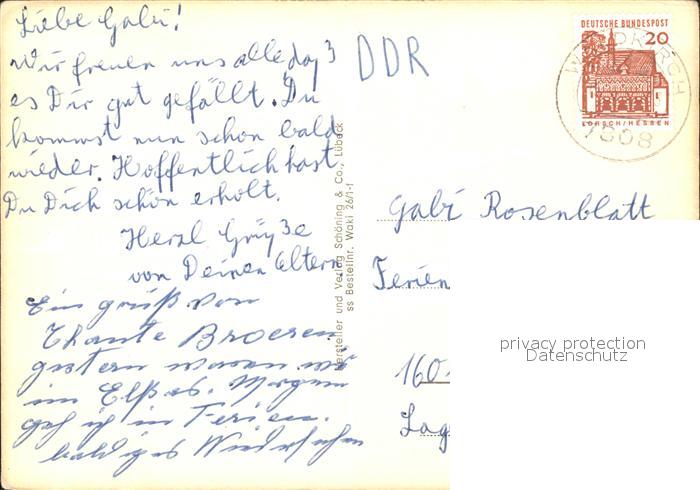 Liebe Gabi!
Wir freuen uns alle daß
es Dir gut gefällt. Du
kommst nun schon bald
wieder. Hoffentlich hast
Du Dich schön erholt.
Herzl Grüße
von Deinen Eltern.
Ein gruß von
Thante Broeren
gestern waren wir
im Elßas. Morgen
geh ich in Ferien.
bald iges Wiedersehen
Hersteller und Verlag Schöning & Co., Lübeck
ss Bestellnr. Waki 26/1-1
DDR
DEUTSCHE BUNDESPOST
20
LORSCH/HESSEN
WALDKIRCH
7808
Gabi Rosenblatt
Ferien
160
Lag
privacy protection
Datenschutz